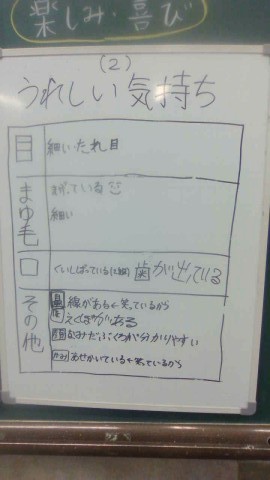 楽しみ・喜び
(2)
うれしい気持ち
目
細いたれ目
まゆ毛
まがっている
細い
口
くいしばっている
歯が出ている
その他
線がある←笑っているから
えくぼがある
なみだぶくろが分かりやすい
あせかいている←笑っているから